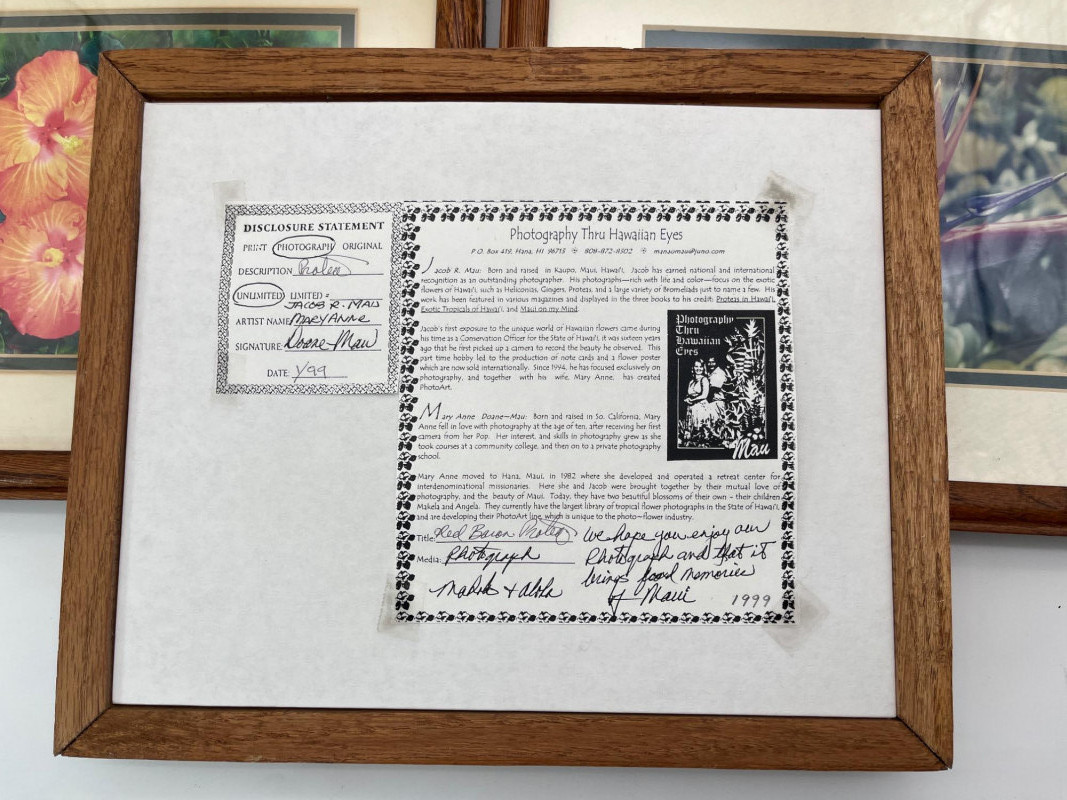 DISCLOSURE STATEMENT
PRINT PHOTOGRAPH ORIGINAL
DESCRIPTION Protea
UNLIMITED LIMITED
JACOB R. MAU
ARTIST NAME MARYANNE
SIGNATURE Doane-Mau
DATE: 1/99
Photography Thru Hawaiian Eyes
P.O. Box 419, Hana, HI 96713 808-872-8502
Jacob R. Mau: Born and raised in Kaupo, Maui, Hawai'i, Jacob has earned national and international
recognition as an outstanding photographer. His photographs—rich with life and color—focus on the exotic
flowers of Hawai'i, such as Heliconias, Gingers, Proteas, and a large variety of Bromeliads just to name a few. His
work has been featured in various magazines and displayed in the three books to his credit: Proteas in Hawai'i,
Exotic Tropicals of Hawai'i, and Maui on my Mind.
Jacob's first exposure to the unique world of Hawaiian flowers came during
his time as a Conservation Officer for the State of Hawai'i; it was sixteen years
ago that he first picked up a camera to record the beauty he observed. This
part time hobby led to the production of note cards and a flower poster
which are now sold internationally. Since 1994, he has focused exclusively on
photography, and together with his wife, Mary Anne, has created
PhotoArt.
Photography
Thru
Hawaiian
Eyes
Maui
Mary Anne Doane-Mau: Born and raised in So. California, Mary
Anne fell in love with photography at the age of ten, after receiving her first
camera from her Pop. Her interest, and skills in photography grew as she
took courses at a community college, and then on to a private photography
school.
Mary Anne moved to Hana, Maui, in 1982 where she developed and operated a retreat center for
interdenominational missionaries. Here she and Jacob were brought together by their mutual love of
photography, and the beauty of Maui. Today, they have two beautiful blossoms of their own - their children
Makela and Angela. They currently have the largest library of tropical flower photographs in the State of Hawai'i,
and are developing their PhotoArt line, which is unique to the photo-flower industry.
Title: Red Baron Protea
Media: Photograph
We hope you enjoy our
Photograph and that it
brings fond memories
of Maui
Mahalo + aloha
1999